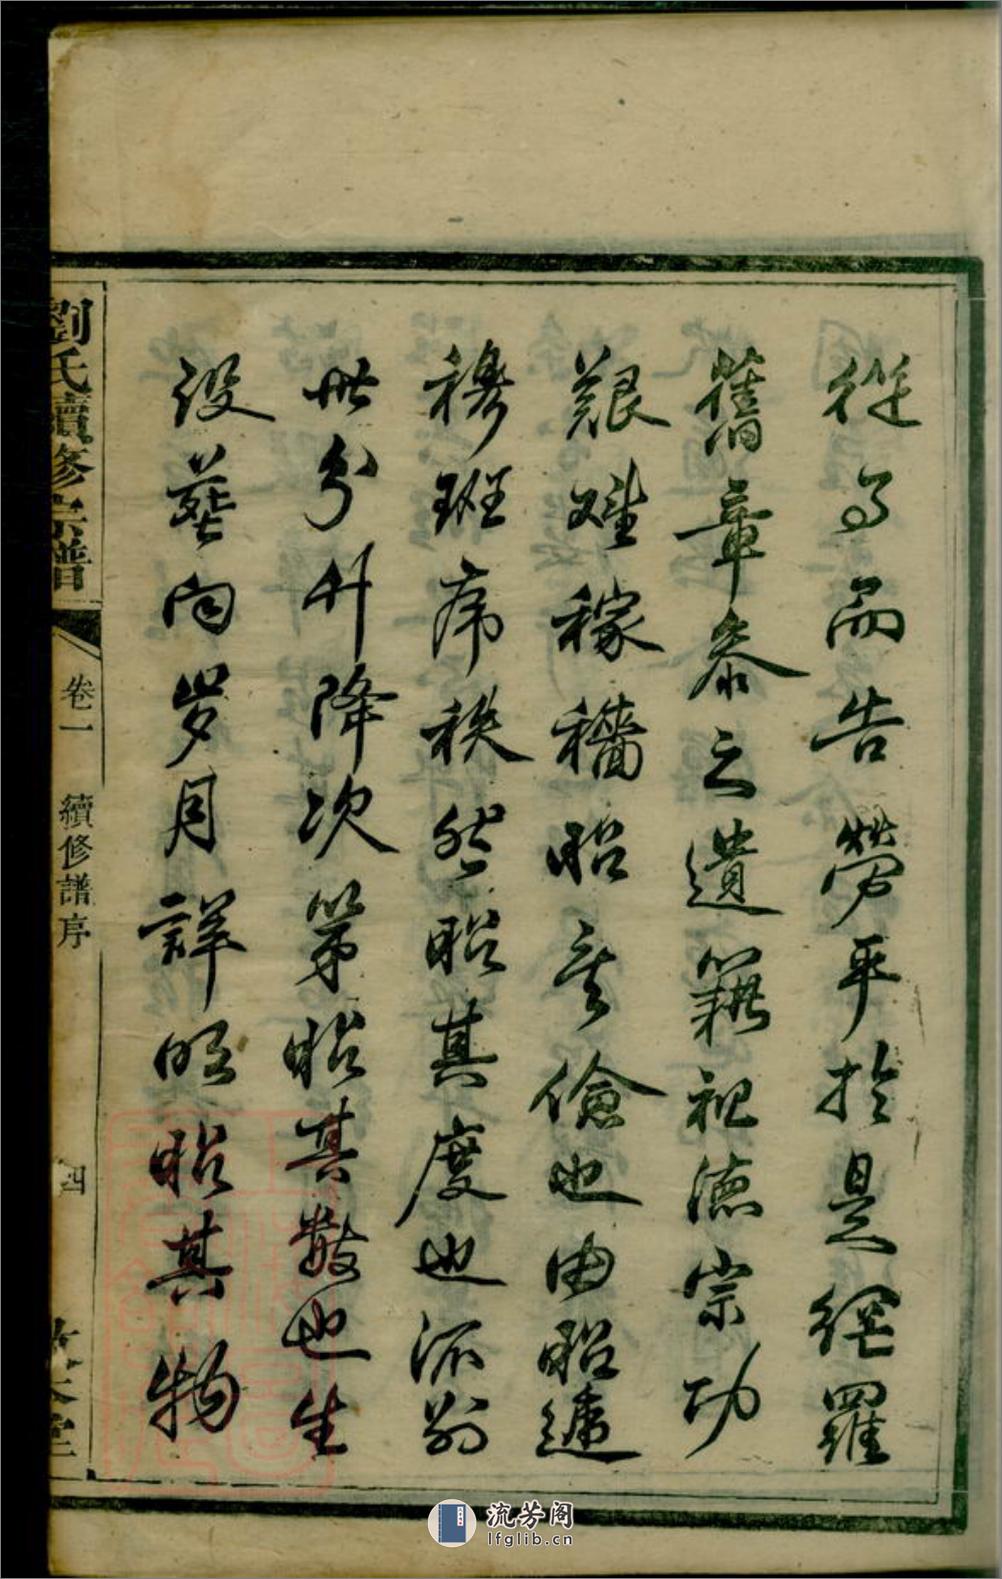 從事而告勞乎於是網羅
舊章參之遺籍祖德宗功
艱難稼穡昭其儉也由昭遞
穆班序秩然昭其度也派別
世分升降次第昭其數也生
没塟向岁月詳明昭其物
劉氏續修宗譜
卷一
續修譜序
四
流芳阁
lfglib.cn